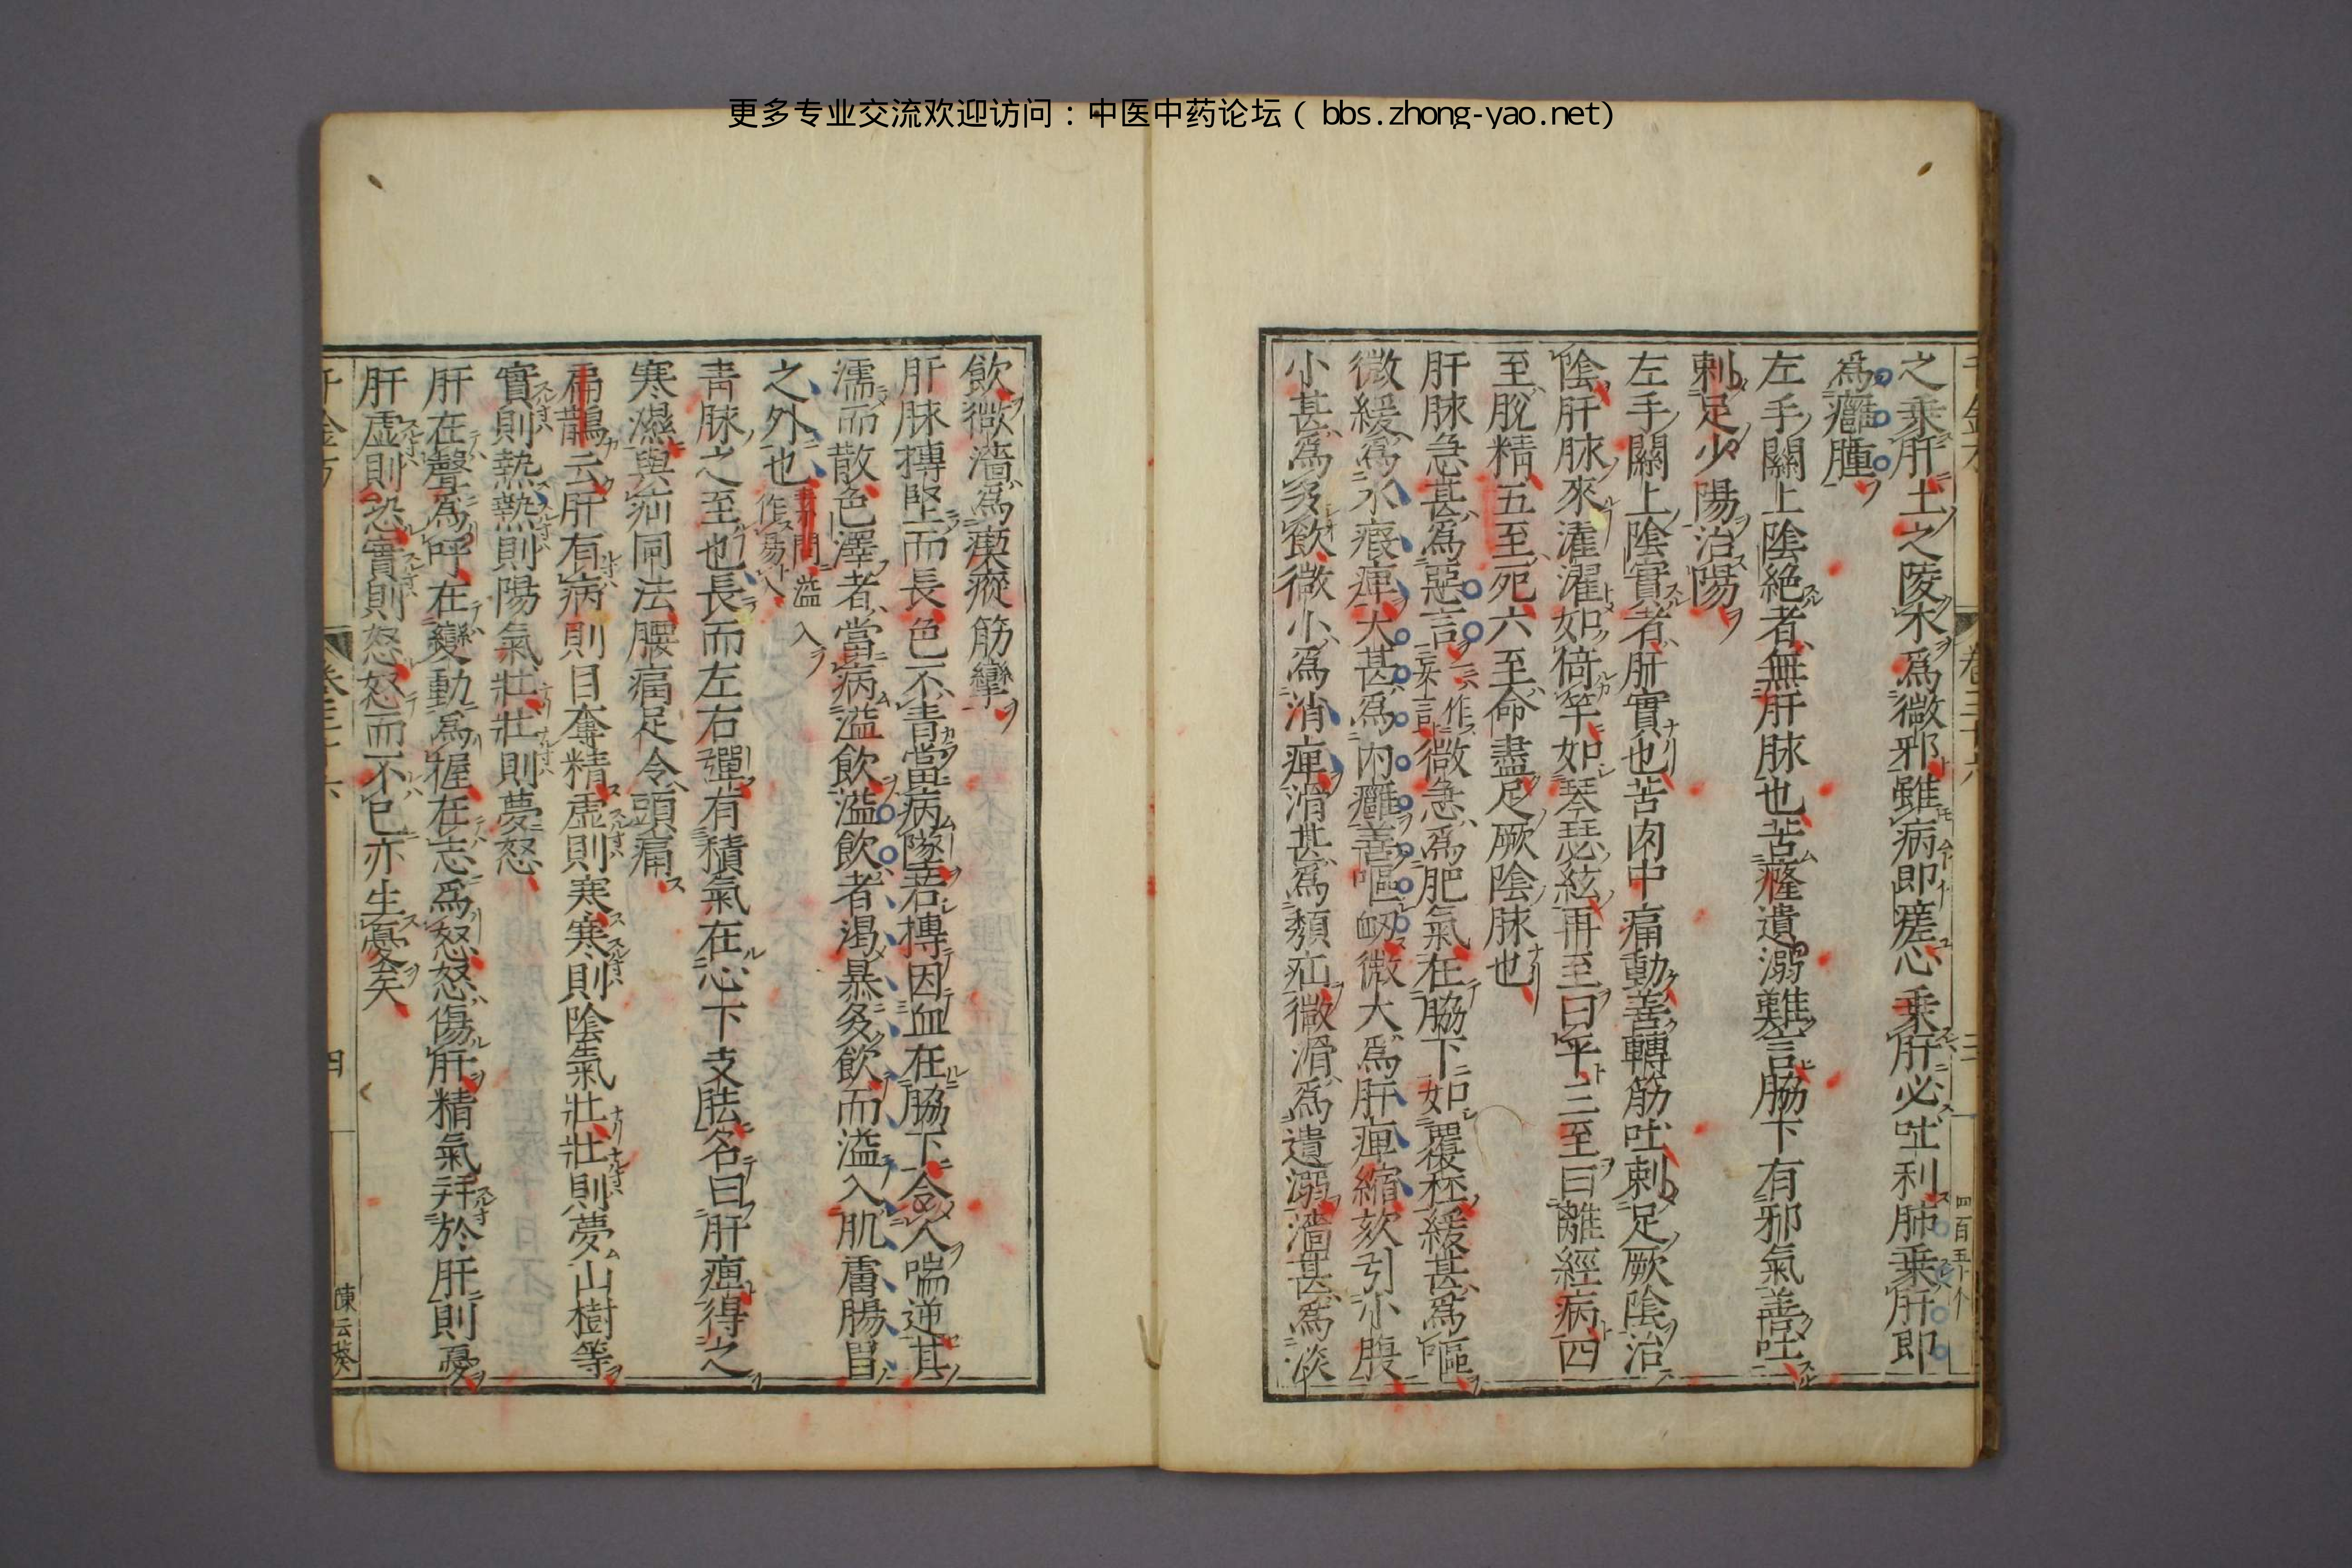 更多专业交流欢迎访问：中医中药论坛（bbs.zhong-yao.net）
之乗肝土之陵木爲微邪雖病即瘥心乗肝必吐利肺乗肝即
爲癰腫
左手關上陰絶者無肝脉也苦癃遺溺難言脇下有邪氣善吐
刺足少陽治陽
左手關上陰實者肝實也苦肉中痛動善轉筋吐刺足厥陰治
陰肝脉來濯濯如倚竿如琴瑟絃再至曰平三至曰離經病四
至脫精五至死六至命盡足厥陰脉也
肝脉急甚爲惡言一作忘言微急爲肥氣在脇下如覆杯緩甚爲嘔
微緩爲水瘕痺大甚爲内癰善嘔衂微大爲肝痺縮欬引小腹
小甚爲多飲微小爲消痺滑甚爲㿗疝微滑爲遺溺濇甚爲淡
飲微濇爲瘈瘲筋攣
肝脉搏堅而長色不青當病墜若搏因血在脇下令人喘逆其
濡而散色澤者當病溢飲溢飲者渴暴多飲而溢入肌膚腸胃
之外也素問溢入作易入
青脉之至也長而左右彈有積氣在心下支胠名曰肝痺得之
寒濕與疝同法腰痛足令頭痛
扁鵲云肝有病則目奪精虛則寒寒則陰氣壯壯則夢山樹等
實則熱熱則陽氣壯壯則夢怒
肝在聲爲呼在變動爲握在志爲怒怒傷肝精氣并於肝則憂
肝虛則恐實則怒怒而不已亦生憂矣
四